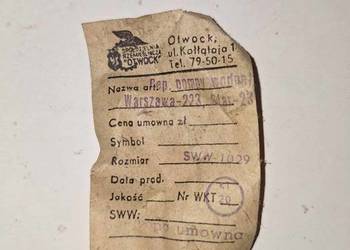 SPÓŁDZIELNIA
RZEMIEŚLNICZA
"OTWOCK"
Otwock,
ul. Kołłątaja 1
Tel. 79-50-15
Nazwa art. Rep. pompy wodnej
Warszawa-223, Star 28
Cena umowna zł
Symbol
Rozmiar SWW 1029
Data prod.
Jakość Nr WKT 20
SWW:
umowna